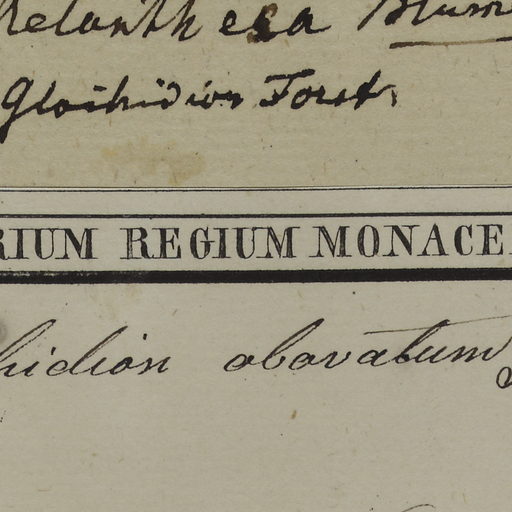 Melanthesa Blum
Glochidion Forst.
RIUM REGIUM MONACE
hidion obovatum